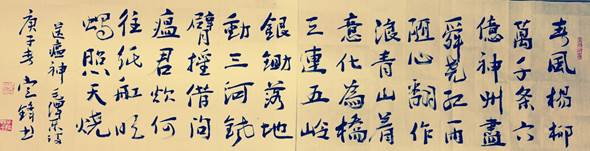 春風楊柳
萬千條六
億神州盡
舜堯紅雨
隨心翻作
浪青山着
意化為橋
天連五嶺
銀鋤落地
動三河鐵
臂搖借問
瘟君欲何
往紙船明
燭照天燒
送瘟神 毛澤東詩
庚子春